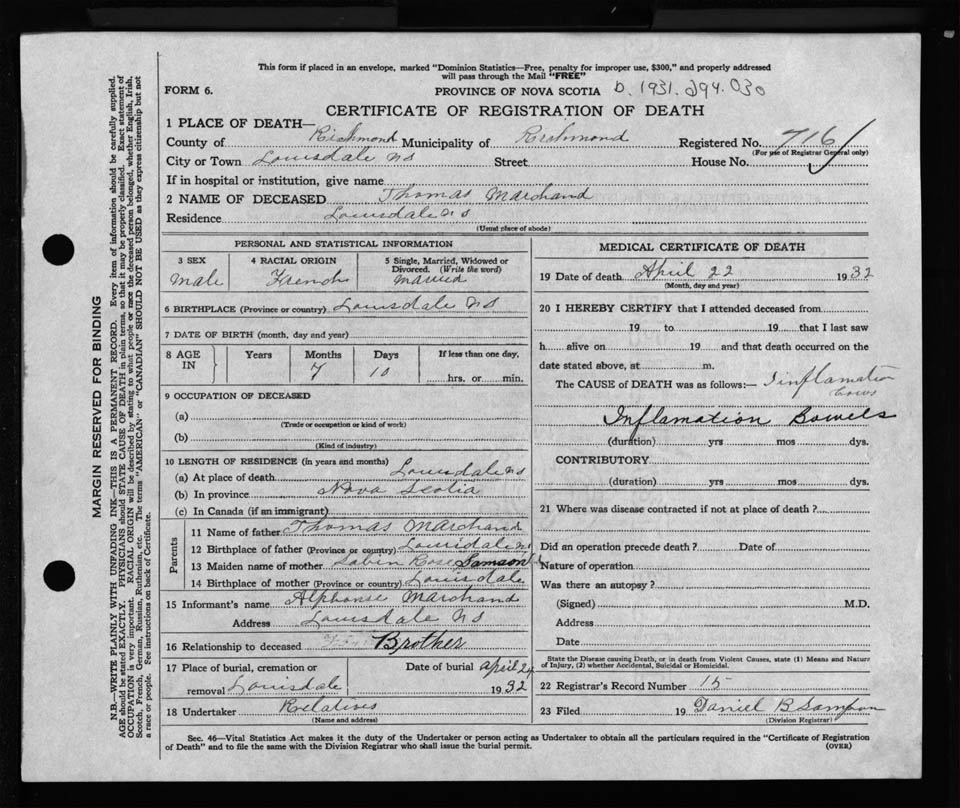 This form if placed in an envelope, marked "Dominion Statistics—Free, penalty for improper use, $300," and properly addressed
will pass through the Mail "FREE"
FORM 6.
PROVINCE OF NOVA SCOTIA
b. 1931. 294. 030
CERTIFICATE OF REGISTRATION OF DEATH
1 PLACE OF DEATH—
County of Richmond Municipality of Richmond Registered No. 716
(For use of Registrar General only)
City or Town Louisdale NS Street House No.
If in hospital or institution, give name
2 NAME OF DECEASED Thomas Marchand
Residence Louisdale NS
(Usual place of abode)
PERSONAL AND STATISTICAL INFORMATION
3 SEX
Male
4 RACIAL ORIGIN
French
5 Single, Married, Widowed or
Divorced. (Write the word)
Married
6 BIRTHPLACE (Province or country) Louisdale NS
7 DATE OF BIRTH (month, day and year)
8 AGE
IN
Years
Months
7
Days
10
If less than one day,
hrs. or min.
9 OCCUPATION OF DECEASED
(a)
(Trade or occupation or kind of work)
(b)
(Kind of industry)
10 LENGTH OF RESIDENCE (in years and months)
(a) At place of death Louisdale NS
(b) In province Nova Scotia
(c) In Canada (if an immigrant)
Parents
11 Name of father Thomas Marchand
12 Birthplace of father (Province or country) Louisdale NS
13 Maiden name of mother Rose Samson
14 Birthplace of mother (Province or country) Louisdale
15 Informant's name Alphonse Marchand
Address Louisdale NS
16 Relationship to deceased Brother
17 Place of burial, cremation or
removal Louisdale
Date of burial April 24
1932
18 Undertaker Relatives
(Name and address)
MEDICAL CERTIFICATE OF DEATH
19 Date of death April 22 1932
(Month, day and year)
20 I HEREBY CERTIFY that I attended deceased from
19 to 19 that I last saw
h alive on 19 and that death occurred on the
date stated above, at m.
The CAUSE of DEATH was as follows:— Inflamation
Inflamation Bowels
(duration) yrs mos dys.
CONTRIBUTORY
(duration) yrs mos dys.
21 Where was disease contracted if not at place of death?
Did an operation precede death? Date of
Nature of operation
Was there an autopsy?
(Signed) M.D.
Address
Date
State the Disease causing Death, or in death from Violent Causes, state (1) Means and Nature
of Injury, (2) whether Accidental, Suicidal or Homicidal.
22 Registrar's Record Number 15
23 Filed 19 Daniel B Sampson
(Division Registrar)
Sec. 46—Vital Statistics Act makes it the duty of the Undertaker or person acting as Undertaker to obtain all the particulars required in the "Certificate of Registration
of Death" and to file the same with the Division Registrar who shall issue the burial permit.
(OVER)
MARGIN RESERVED FOR BINDING
N.B.—WRITE PLAINLY WITH UNFADING INK—THIS IS A PERMANENT RECORD. Every item of information should be carefully supplied.
AGE should be stated EXACTLY. PHYSICIANS should STATE CAUSE OF DEATH in plain terms, so that it may be properly classified. Exact statement of
OCCUPATION is very important. RACIAL ORIGIN will be described by stating to what people or race the deceased person belonged, whether English, Irish,
Scotch, French, German, Russian, Ruthenian, etc. The terms "AMERICAN" or "CANADIAN" SHOULD NOT BE USED as they express citizenship but not
a race or people. See instructions on back of Certificate.